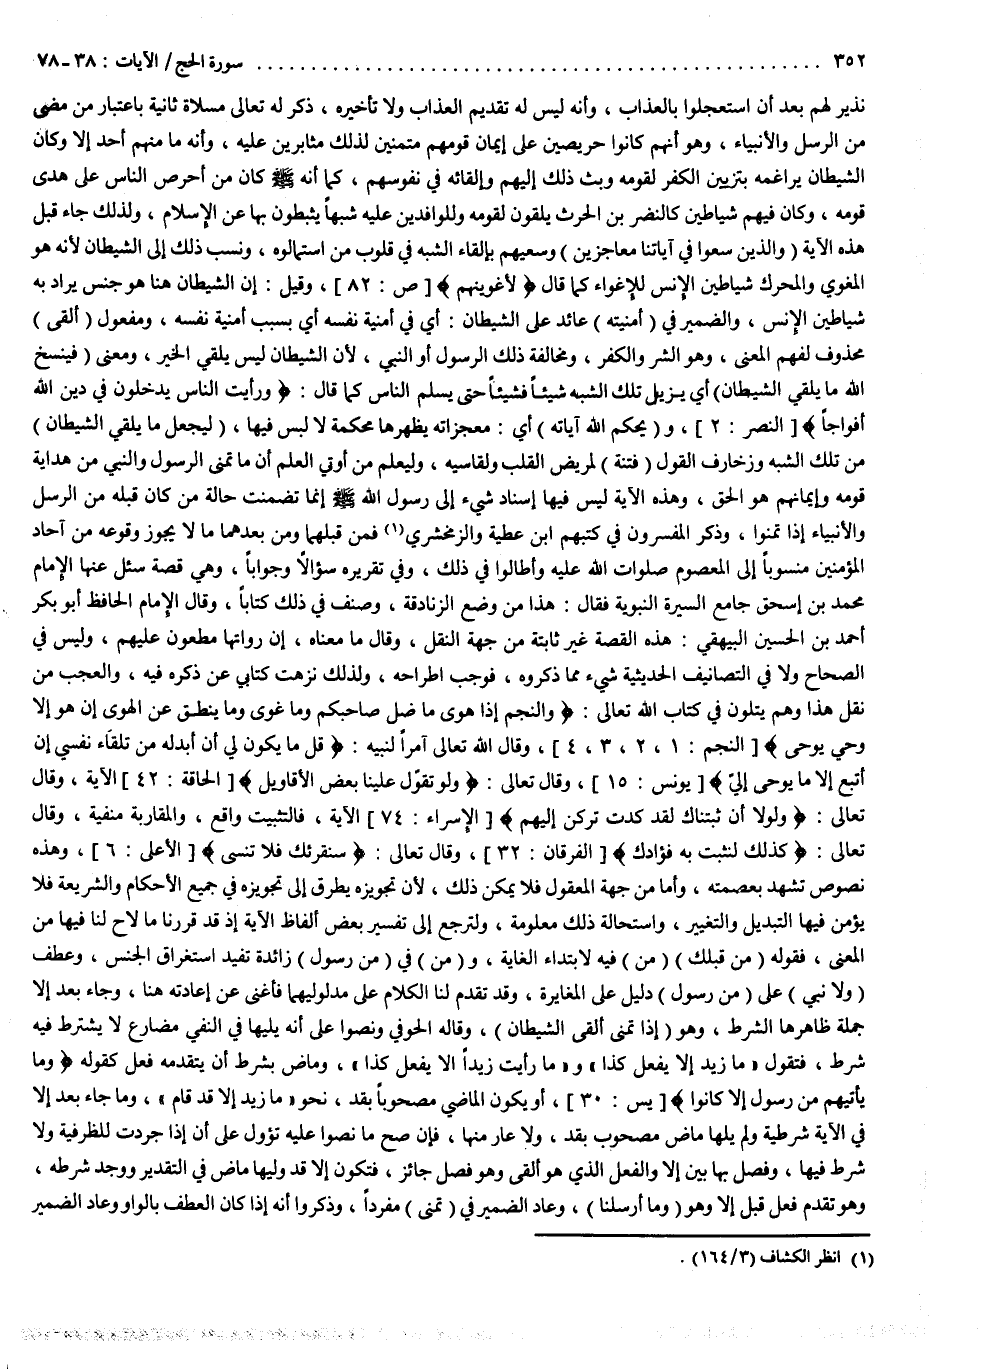 ٣٥٢ ........................................ سورة الحج / الآيات : ٣٨ ـ ٧٨
نذير لهم بعد أن استعجلوا بالعذاب ، وأنه ليس له تقديم العذاب ولا تأخيره ، ذكر له تعالى مسلاة ثانية باعتبار من مضى
من الرسل والأنبياء ، وهو أنهم كانوا حريصين على إيمان قومهم متمنين لذلك مثابرين عليه ، وأنه ما منهم أحد إلا وكان
الشيطان يراغمه بتزيين الكفر لقومه وبث ذلك إليهم وإلقائه في نفوسهم ، كما أنه ﷺ كان من أحرص الناس على هدى
قومه ، وكان فيهم شياطين كالنضر بن الحرث يلقون لقومه وللوافدين عليه شبهاً يثبطون بها عن الإسلام ، ولذلك جاء قبل
هذه الآية ( والذين سعوا في آياتنا معاجزين ) وسعيهم بإلقاء الشبه في قلوب من استمالوه ، ونسب ذلك إلى الشيطان لأنه هو
المغوي والمحرك شياطين الإنس للإغواء كما قال ﴿ لأغوينهم ﴾ [ ص : ٨٢ ] ، وقيل : إن الشيطان هنا هو جنس يراد به
شياطين الإنس ، والضمير في ( أمنيته ) عائد على الشيطان : أي في أمنية نفسه أي بسبب أمنية نفسه ، ومفعول ( ألقى )
محذوف لفهم المعنى ، وهو الشر والكفر ، ومخالفة ذلك الرسول أو النبي ، لأن الشيطان ليس يلقي الخير ، ومعنى ( فينسخ
الله ما يلقي الشيطان) أي يـزيل تلك الشبه شيئـاً فشيئـاً حتى يسلم الناس كما قال : ﴿ ورأيت الناس يدخلون في دين الله
أفواجاً ﴾ [ النصر : ٢ ] ، و ( يحكم الله آياته ) أي : معجزاته يظهرها محكمة لا لبس فيها ، ( ليجعل ما يلقي الشيطان )
من تلك الشبه وزخارف القول ( فتنة ) لمريض القلب ولقاسيه ، وليعلم من أوتي العلم أن ما تمنى الرسول والنبي من هداية
قومه وإيمانهم هو الحق ، وهذه الآية ليس فيها إسناد شيء إلى رسول الله ﷺ إنما تضمنت حالة من كان قبله من الرسل
والأنبياء إذا تمنوا ، وذكر المفسرون في كتبهم ابن عطية والزمخشري (١) فمن قبلهما ومن بعدهما ما لا يجوز وقوعه من آحاد
المؤمنين منسوباً إلى المعصوم صلوات الله عليه وأطالوا في ذلك ، وفي تقريره سؤالاً وجواباً ، وهي قصة سئل عنها الإمام
محمد بن إسحق جامع السيرة النبوية فقال : هذا من وضع الزنادقة ، وصنف في ذلك كتاباً ، وقال الإمام الحافظ أبو بكر
أحمد بن الحسين البيهقي : هذه القصة غير ثابتة من جهة النقل ، وقال ما معناه ، إن رواتها مطعون عليهم ، وليس في
الصحاح ولا في التصانيف الحديثية شيء مما ذكروه ، فوجب اطراحه ، ولذلك نزهت كتابي عن ذكره فيه ، والعجب من
نقل هذا وهم يتلون في كتاب الله تعالى : ﴿ والنجم إذا هوى ما ضل صاحبكم وما غوى وما ينطق عن الهوى إن هو إلا
وحي يوحى ﴾ [ النجم : ١ ، ٢ ، ٣ ، ٤ ] ، وقال الله تعالى آمراً لنبيه : ﴿ قل ما يكون لي أن أبدله من تلقاء نفسي إن
أتبع إلا ما يوحى إليّ ﴾ [ يونس : ١٥ ] ، وقال تعالى : ﴿ ولو تقوّل علينا بعض الأقاويل ﴾ [ الحاقة : ٤٢ ] الآية ، وقال
تعالى : ﴿ ولولا أن ثبتناك لقد كدت تركن إليهم ﴾ [ الإسراء : ٧٤ ] الآية ، فالتثبيت واقع ، والمقاربة منفية ، وقال
تعالى : ﴿ كذلك لنثبت به فؤادك ﴾ [ الفرقان : ٣٢ ] ، وقال تعالى : ﴿ سنقرئك فلا تنسى ﴾ [ الأعلى : ٦ ] ، وهذه
نصوص تشهد بعصمته ، وأما من جهة المعقول فلا يمكن ذلك ، لأن تجويزه يطرق إلى تجويزه في جميع الأحكام والشريعة فلا
يؤمن فيها التبديل والتغيير ، واستحالة ذلك معلومة ، ولترجع إلى تفسير بعض ألفاظ الآية إذ قد قررنا ما لاح لنا فيها من
المعنى ، فقوله ( من قبلك ) ( من ) فيه لابتداء الغاية ، و ( من ) في ( من رسول ) زائدة تفيد استغراق الجنس ، وعطف
( ولا نبي ) على ( من رسول ) دليل على المغايرة ، وقد تقدم لنا الكلام على مدلوليهما فأغنى عن إعادته هنا ، وجاء بعد إلا
جملة ظاهرها الشرط ، وهو ( إذا تمنى ألقى الشيطان ) ، وقاله الحوفي ونصوا على أنه يليها في النفي مضارع لا يشترط فيه
شرط ، فتقول « ما زيد إلا يفعل كذا » و « ما رأيت زيداً الا يفعل كذا » ، وماض بشرط أن يتقدمه فعل كقوله ﴿ وما
يأتيهم من رسول إلا كانوا ﴾ [ يس : ٣٠ ] ، أو يكون الماضي مصحوباً بقد ، نحو « ما زيد إلا قد قام » ، وما جاء بعد إلا
في الآية شرطية ولم يلها ماض مصحوب بقد ، ولا عار منها ، فإن صح ما نصوا عليه تؤول على أن إذا جردت للظرفية ولا
شرط فيها ، وفصل بها بين إلا والفعل الذي هو ألقى وهو فصل جائز ، فتكون إلا قد وليها ماض في التقدير ووجد شرطه ،
وهو تقدم فعل قبل إلا وهو ( وما أرسلنا ) ، وعاد الضمير في ( تمنى ) مفرداً ، وذكروا أنه إذا كان العطف بالواو وعاد الضمير
(١) انظر الكشاف (٣/١٦٤) .